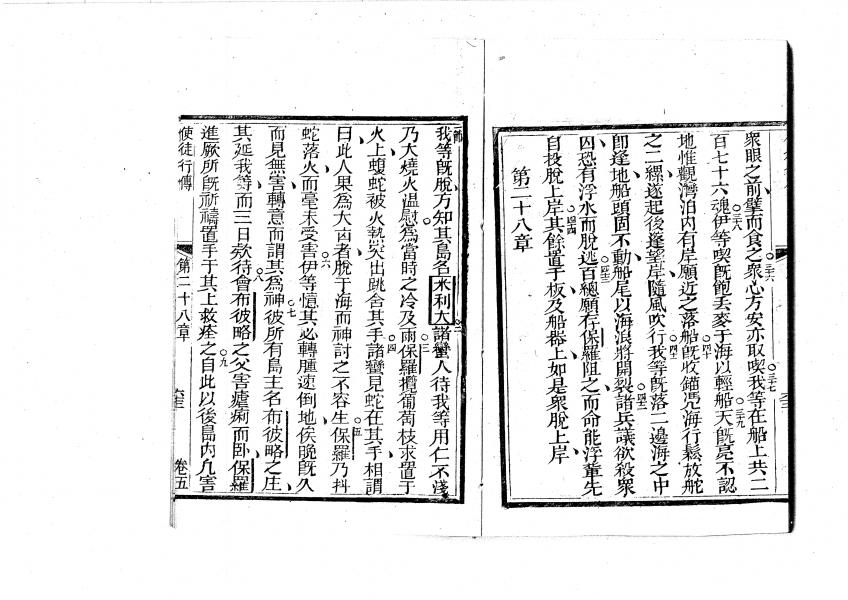 衆眼之前擘而食之衆心方安亦取喫我等在船上共二
百七十六魂伊等喫既飽丢麥于海以輕船天既亮不認
地惟觀灣泊内有岸願近之落船既收錨凴海行鬆放舵
之二繩遂起後篷望岸隨風吹行我等既落二邊海之中
即逢地船頭固不動船尾以海浪將開裂諸兵議欲殺衆
囚恐有浮水而脫逃百總願存保羅阻之而命能浮輩先
自投脫上岸其餘置于板及船器上如是衆脫上岸
第二十八章
我等既脫方知其島名米利大諸蠻人待我等用仁不淺
乃大燒火温慰為當時之冷及雨保羅攬葡萄枝求置于
火上蝮蛇被火熱出跳舍其手諸蠻見蛇在其手相謂
曰此人果為大凶者脫于海而神討之不容生保羅乃抖
蛇落火而毫未受害伊等憶其必轉腫速倒地俟晚既久
而見無害轉意而謂其為神彼所有島主名布彼略之庄
其延我等而三日欵待會布彼略之父害瘧痢而卧保羅
進厥所既祈禱置手于其上救痊之自此以後島内凢害
使徒行傳
第二十八章
卷五